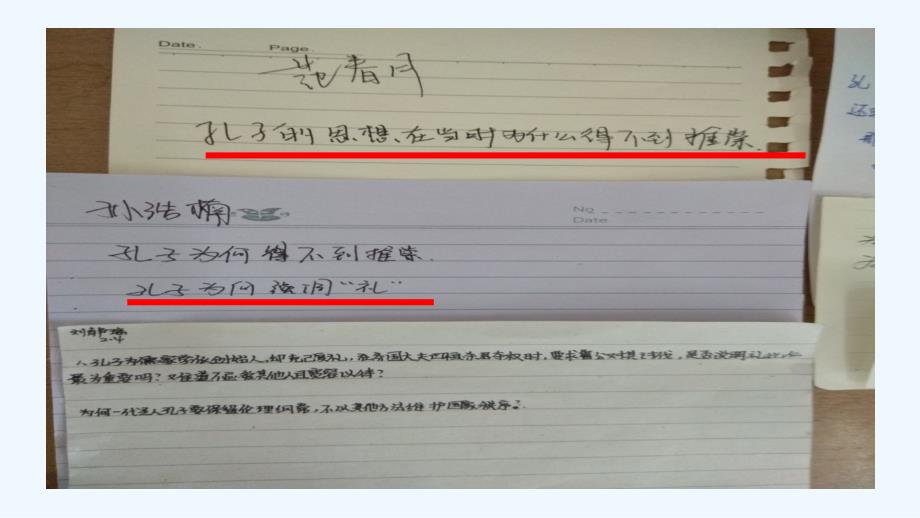 Date.
Page.
春月
孔子的思想、在当时为什么得不到推崇.
孙浩楠
No
Date
孔子为何得不到推崇.
孔子为何强调“礼”
刘
2.4
1、孔子为儒家学派创始人,却克己复礼,在齐国大夫陈恒杀君夺权时,要求鲁公对其讨伐,是否说明礼
最为重要吗?又难道不应教其他人且宽容以待?
为何一代圣人孔子要保留伦理纲常,不以其他方法维护国家秩序?
孔
还